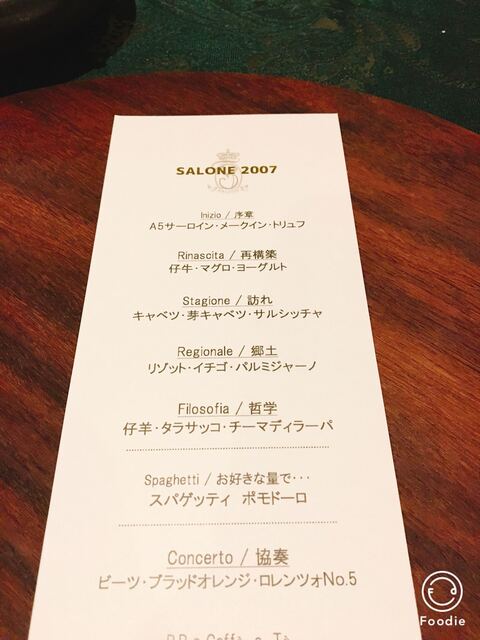 SALONE 2007
Inizio / 序章
A5サーロイン・メークイン・トリュフ
Rinascita / 再構築
仔牛・マグロ・ヨーグルト
Stagione / 訪れ
キャベツ・芽キャベツ・サルシッチャ
Regionale / 郷土
リゾット・イチゴ・パルミジャーノ
Filosofia / 哲学
仔羊・タラサッコ・チーマディラーパ
Spaghetti / お好きな量で・・・
スパゲッティ ポモドーロ
Concerto / 協奏
ビーツ・ブラッドオレンジ・ロレンツォNo.5
Foodie